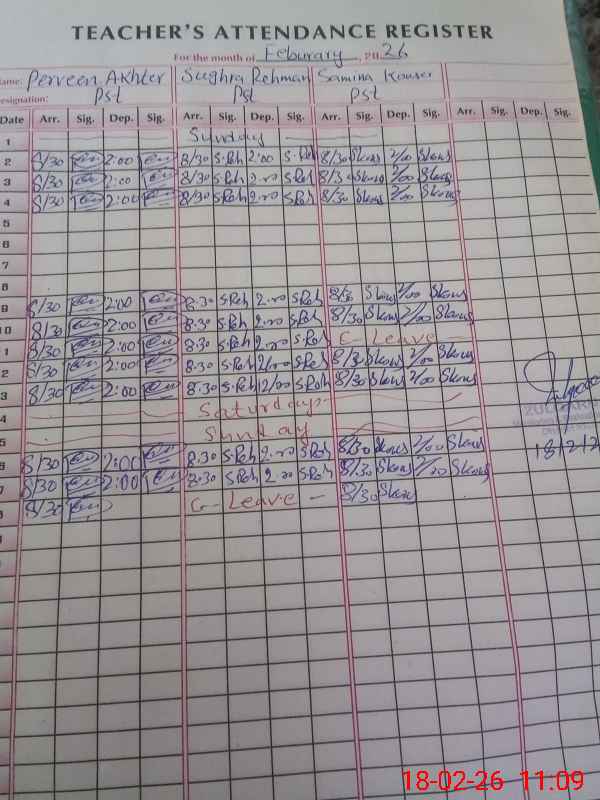 TEACHER'S ATTENDANCE REGISTER
For the month of Feburary, 2026
Name: Perveen Akhter Sughra Rehman Samina Kouser
Designation: Pst Pst Pst
Date Arr. Sig. Dep. Sig. Arr. Sig. Dep. Sig. Arr. Sig. Dep. Sig. Arr. Sig. Dep. Sig.
1 Sunday
2 8/30 2:00 8/30 S.Reh 2:00 S.Reh 8/30 Skous 2/00 Skous
3 8/30 2:00 8/30 S.Reh 2.00 S.Reh 8/30 Skous 2/00 Skous
4 8/30 2:00 8/30 S.Reh 2.00 S.Reh 8/30 Skous 2/00 Skous
5
6
7
8
9 8/30 2:00 8.30 S.Reh 2.00 S.Reh 8/30 Skous 2/00 Skous
10 8/30 2:00 8.30 S.Reh 2.00 S.Reh 8/30 Skous 2/00 Skous
1 8/30 2:00 8.30 S.Reh 2.00 S.Reh C- Leave
2 8/30 2:00 8.30 S.Reh 2/00 S.Reh 8/30 Skous 2/00 Skous
3 8/30 2:00 8.30 S.Reh 2/00 S.Reh 8/30 Skous 2/00 Skous
4 Saturday
5 Sunday
6 8/30 2:00 8.30 S.Reh 2.00 S.Reh 8/30 Skous 2/00 Skous
7 8/30 2:00 8.30 S.Reh 2.00 S.Reh 8/30 Skous 2/00 Skous
8 8/30 C- Leave - 8/30 Skous
18/2/2
18-02-26 11:09